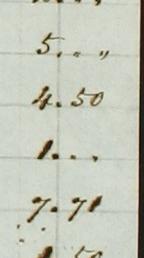 5. . „
4. 50
1. . .
7. 71